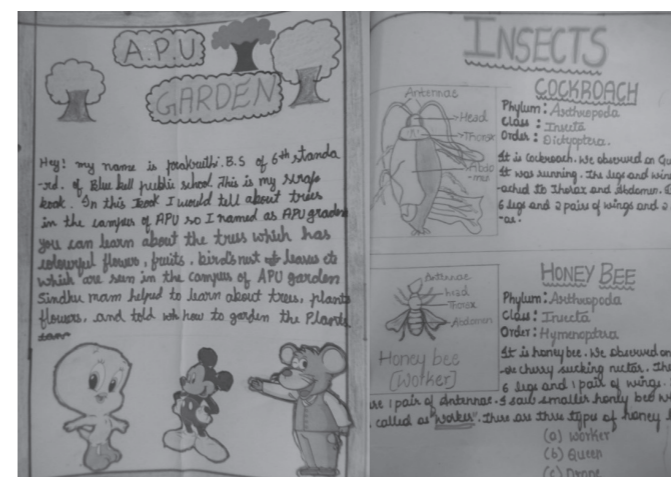 A.P.U
GARDEN
Hey! my name is B.S of 6th standa
-rd. of Blue bell public school. This is my scrap
book. In this book I would tell about trees
in the campus of APU so I named as APU graden
you can learn about the trees which has
colourful flowers, fruits, bird's nest leaves etc
which are seen in the campus of APU garden
Sindhu mam helped to learn about trees, plants
flowers, and told how to garden the Plants
INSECTS
COCKROACH
Antennae
Head
Thorax
Abdo
-men
Phylum: Arthropoda
Class: Insecta
Order: Dictyoptera.
It is cockroach. We observed on
It was running. The legs and win
-ached to Thorax and Abdomen.
6 legs and 2 pairs of wings and 2
-ae.
HONEY BEE
Antennae
head
Thorax
Abdomen
Honey bee
[Worker]
Phylum: Arthropoda
Class: Insecta
Order: Hymenoptera
It is honey bee. We observed on
-e cherry sucking nectar. The
6 legs and 1 pair of wings.
1 pair of antennae. I saw smaller honey bee w
called as "worker". There are three type of honey
(a) Worker
(b) Queen
(c) Drone